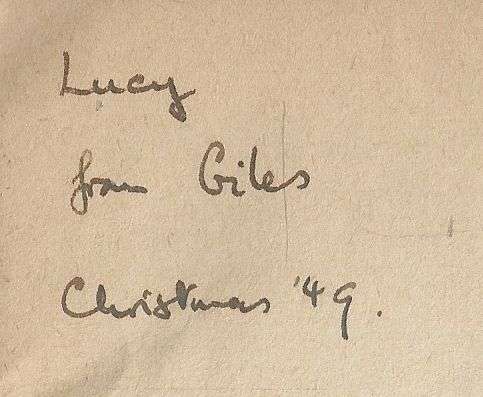 Lucy
from Giles
Christmas '49.